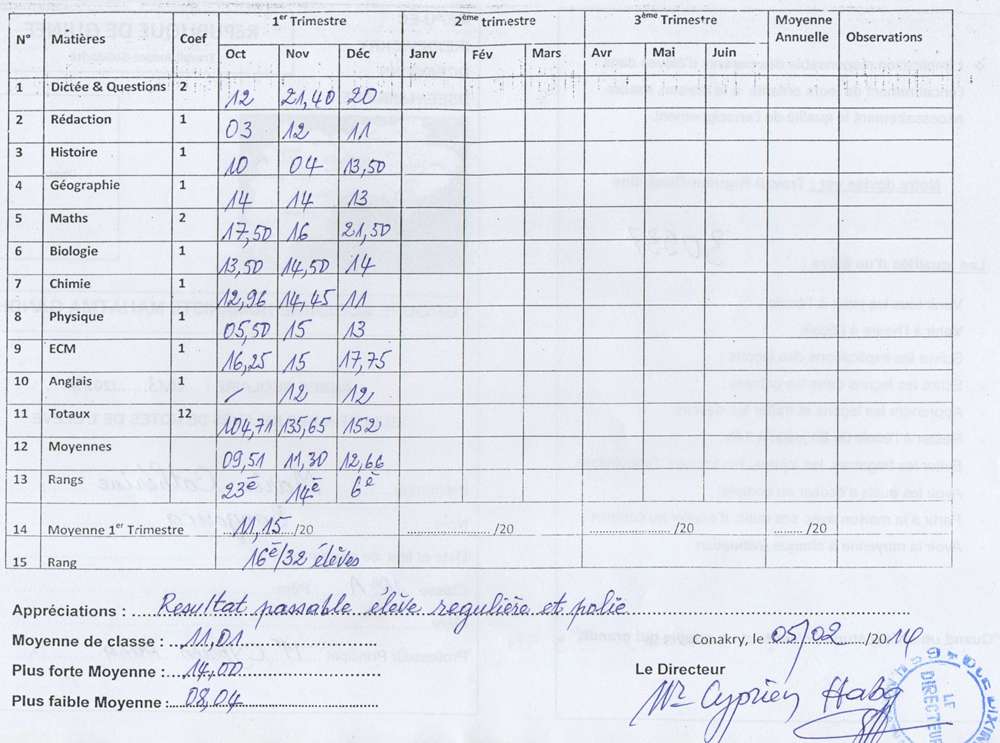 1er Trimestre 2ème trimestre 3ème Trimestre Moyenne Annuelle Observations
N° Matières Coef Oct Nov Déc Janv Fév Mars Avr Mai Juin
1 Dictée & Questions 2 12 21,40 20
2 Rédaction 1 03 12 11
3 Histoire 1 10 04 13,50
4 Géographie 1 14 14 13
5 Maths 2 17,50 16 21,50
6 Biologie 1 13,50 14,50 14
7 Chimie 1 12,96 14,45 11
8 Physique 1 05,50 15 13
9 ECM 1 16,25 15 17,75
10 Anglais 1 / 12 12
11 Totaux 12 104,71 135,65 152
12 Moyennes 09,51 11,30 12,66
13 Rangs 23è 14è 6è
14 Moyenne 1er Trimestre 11,15 /20 /20 /20 /20
15 Rang 16è/32 élèves
Appréciations : Resultat passable élève regulière et polie
Moyenne de classe : 11,01
Conakry, le 05/02 /2014
Plus forte Moyenne : 14,00
Le Directeur
Plus faible Moyenne : 08,04
Mr Cyprien Haba
LE DIRECTEUR